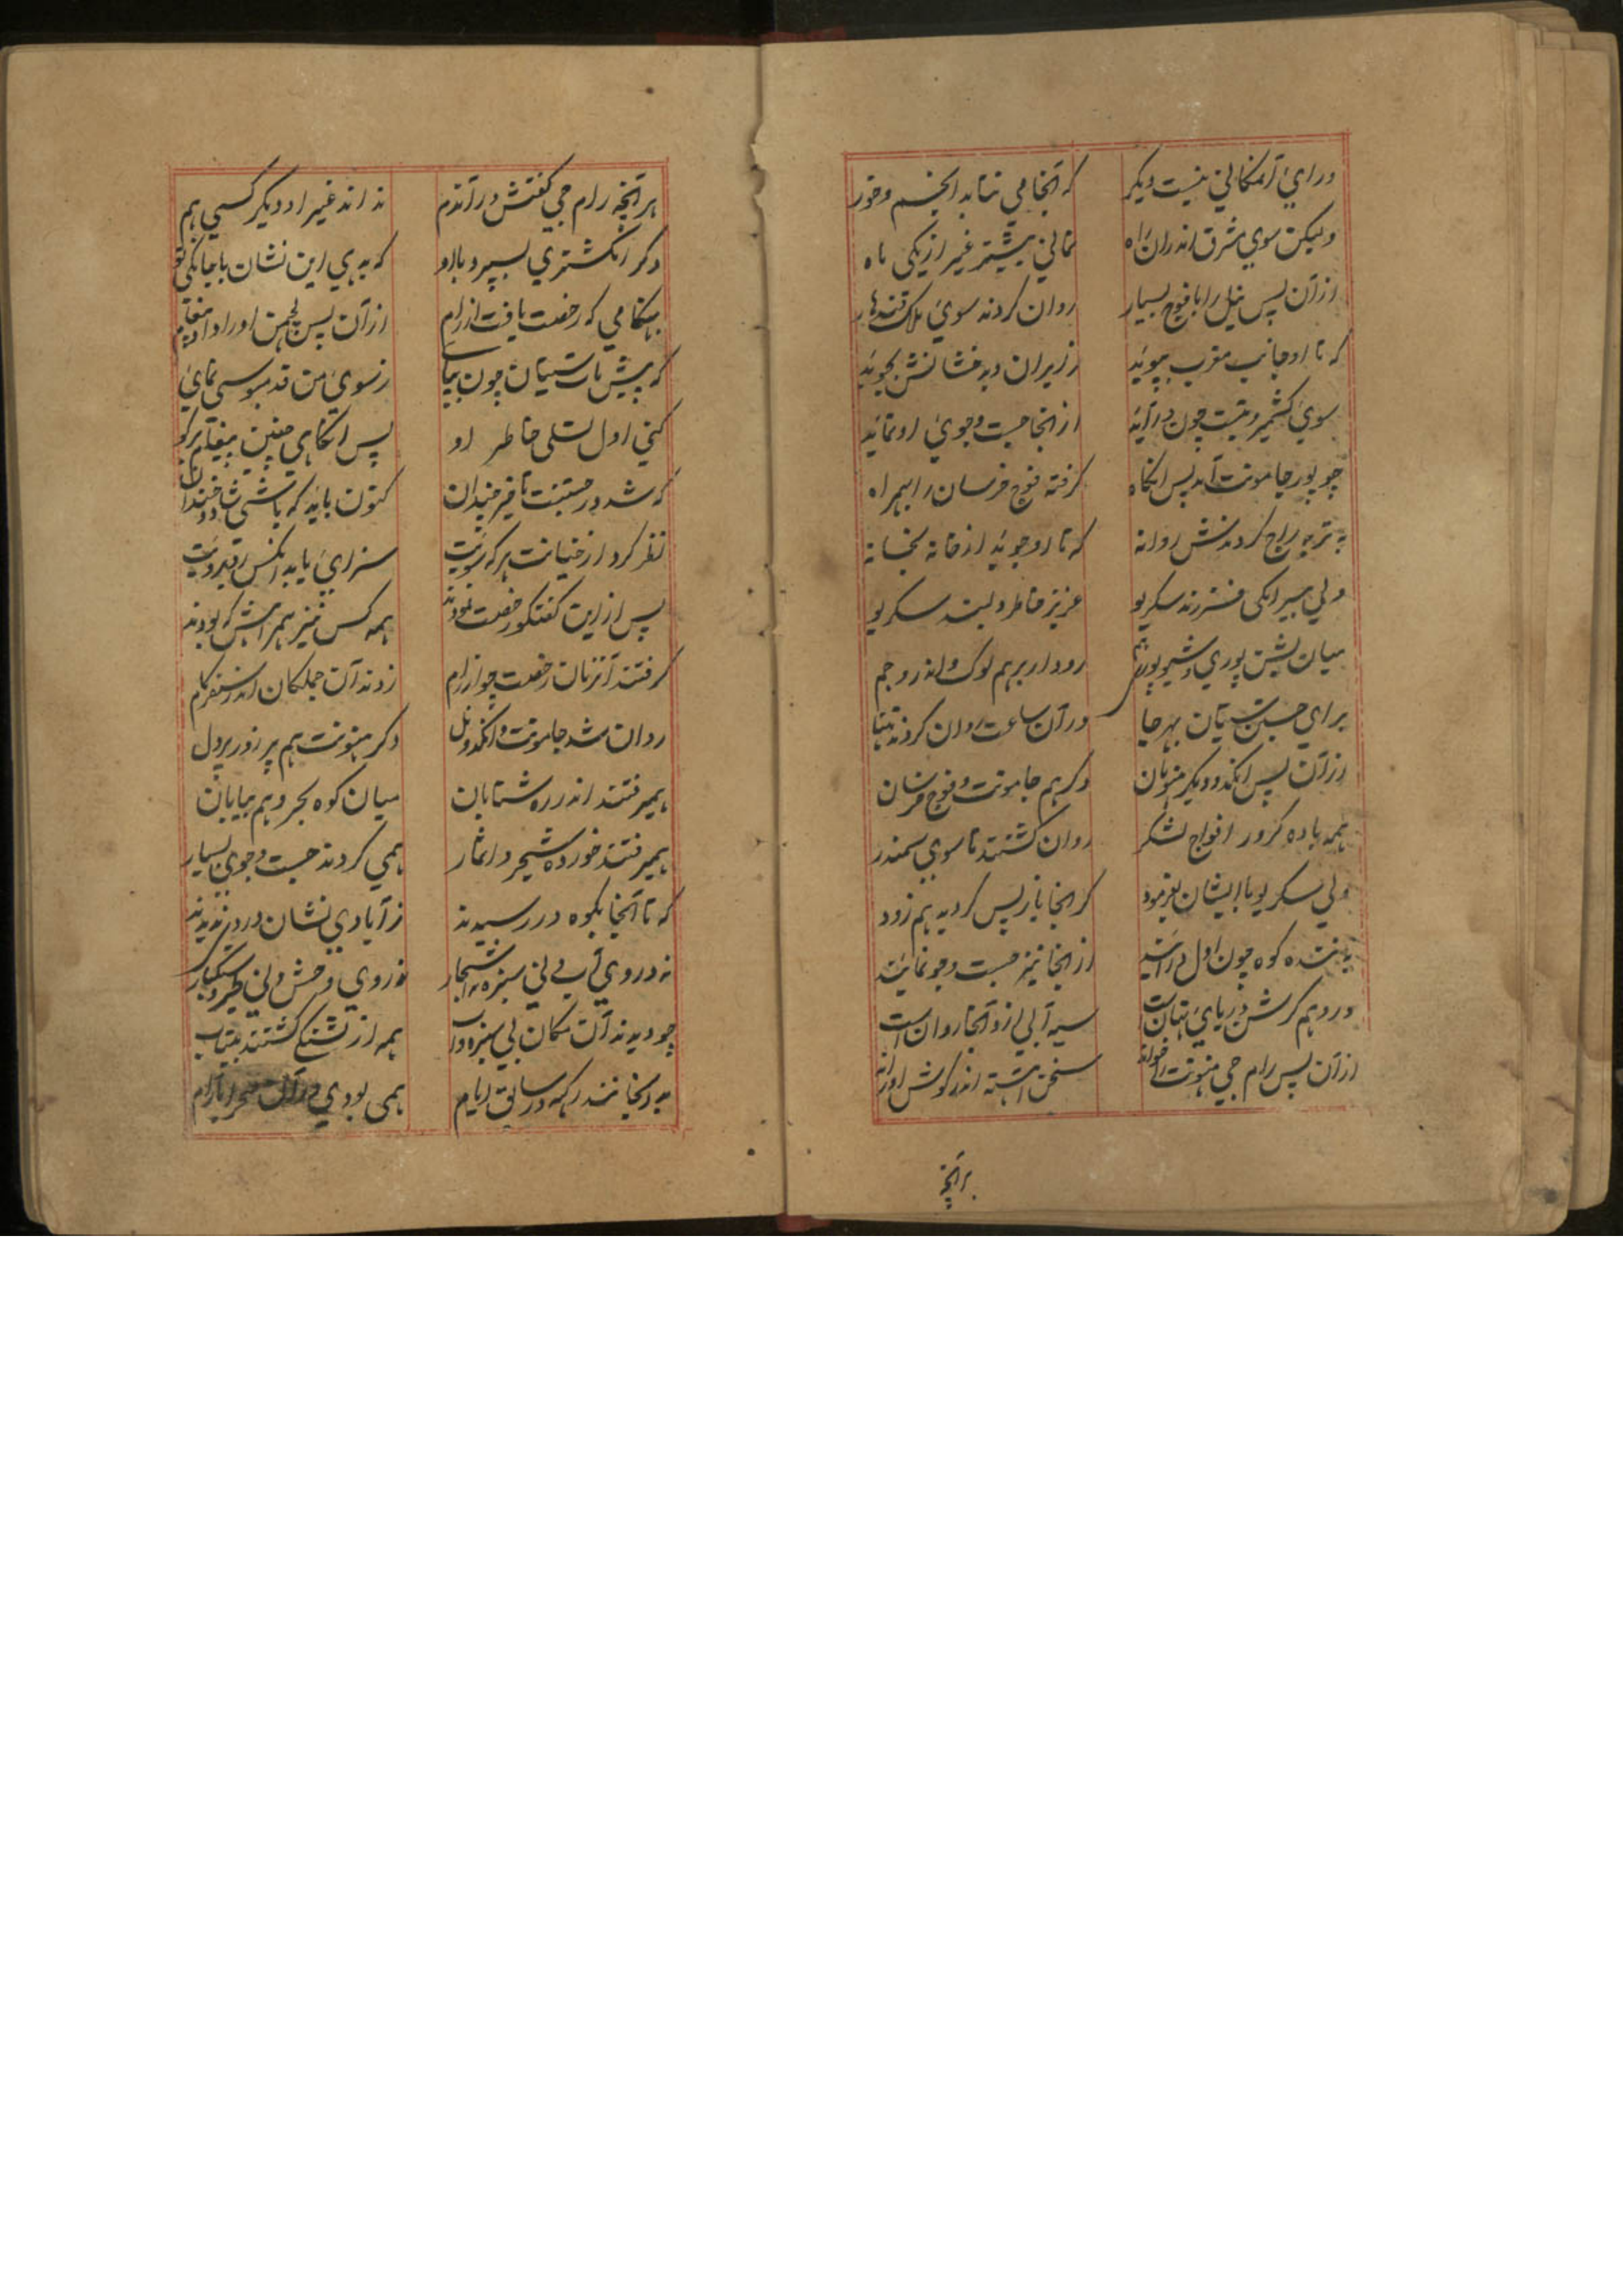 ورای آنمکانی نیست دیکر که آنجا می نتابد انجم و خور
ولیکن سوی مشرق اندران راه نمانی بیشتر غیر از یکی ماه
ازان پس نیل را با فوج بسیار روان کردند سوی ملک قندهار
که تا او جانب مغرب بپوید ز ایران و بدخشانش بجوید
سوی کشمیر و تبت چون درآید از انجا جست و جوی او نماید
چو پور جامونت آمد پس آنکاه کرفته فوج خرسان را بهمراه
به تربه راج کردندش روانه که تا او جوید از خانه بخانه
ولی سیر انکی فرزند سکریو عزیز خاطر و لبند سکریو
میان بشن پوری و شیوپور هم رود او برهم لوک و اندر و جم
برای جستن سیتان بهرجا در آن ساعت روان کردند تنها
از آن پس انکد و دیکر هنونان دکر هم جامونت و فوج خرسان
همه با ده کرور افواج لشکر روان کشتند تا سوی سمندر
ولی سکریو با ایشان بفرمود کز انجا باز پس کردید هم زود
به بنده کوه چون اول درآئید از انجا نیز جست و جو نمائید
ورود هم کرشن دریای تهان است سیه آبی ازو آنجا روان است
از آن پس رام جی هنونت را خواند سخن آهسته اندر کوش او راند
هر آنچه
هر آنچه رام جی کفتش در آندم نداند غیر او دیکر کسی هم
دکر انکشتری بسپرد با او که بدهی این نشان با جانکی تو
بهنکامی که رخصت یافت از رام ازان پس لچهمن او را داد پیغام
که پیش مات سیتان چون بیائی ز سوی من قدمبوسی نمائی
کنی اول تسلی خاطر او پس آنکاهی چنین پیغام بر کو
که شد در جستنت تاخیر چندان کنون باید که باشی شاد و خندان
نظر کرد از خیانت هرکه سویت سزای یابد آنکس روبرویت
پس از این کفتکو رخصت نمودند همه کس نیز همراهش که بودند
کرفتند آنزمان رخصت چو از رام زدند آن جملکان اندر سفر کام
روان شد جامونت و انکد و نل دکر هنونت هم پر زور پر دل
همیرفتند اندر ره شتابان میان کوه بحر و هم بیابان
همیرفتند خورده شجر و اثمار همی کردند جست و جوی بسیار
که تا آنجا بکوه در رسیدند ز آبادی نشان در وی ندیدند
نه در وی آب و نی سبزه نه اشجار نه روی وحش و نی طیر و سبکبار
چو دیدند آن مکان بی سبزه و آب همه از تشنکی کشتند بیتاب
رکهه در سابق ایام همی بودی در آن صحرا بآرام